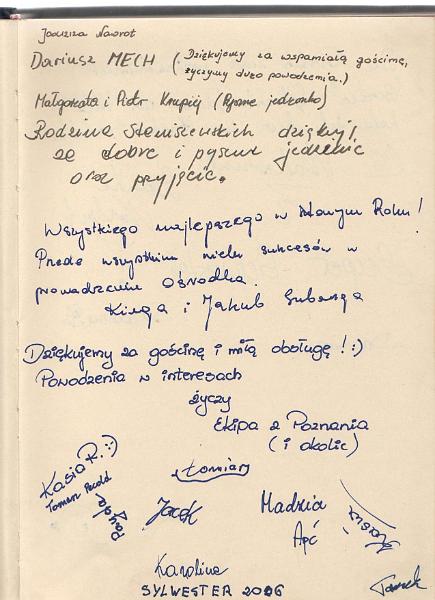 Janusza Nawrot
Dariusz MECH (Dziękujemy za wspaniałą gościnę,
życzymy dużo powodzenia.)
Małgorzata i Piotr Krupiej (Pyszne jedzonko)
Rodzina Staniszewskich dziękuję
za dobre i pyszne jedzenie
oraz przyjęcie.
Wszystkiego najlepszego w Nowym Roku!
Przede wszystkim wielu sukcesów w
prowadzeniu Ośrodka.
Kinga i Jakub
Dziękujemy za gościnę i miłą obsługę!:)
Powodzenia w interesach
życzy
Ekipa z Poznania
(i okolic)
Łomiarz
Kasia R. :-)
Tomasz
Jacek
Madzia
Apć
Karolina
SYLWESTER 2006
Tomek